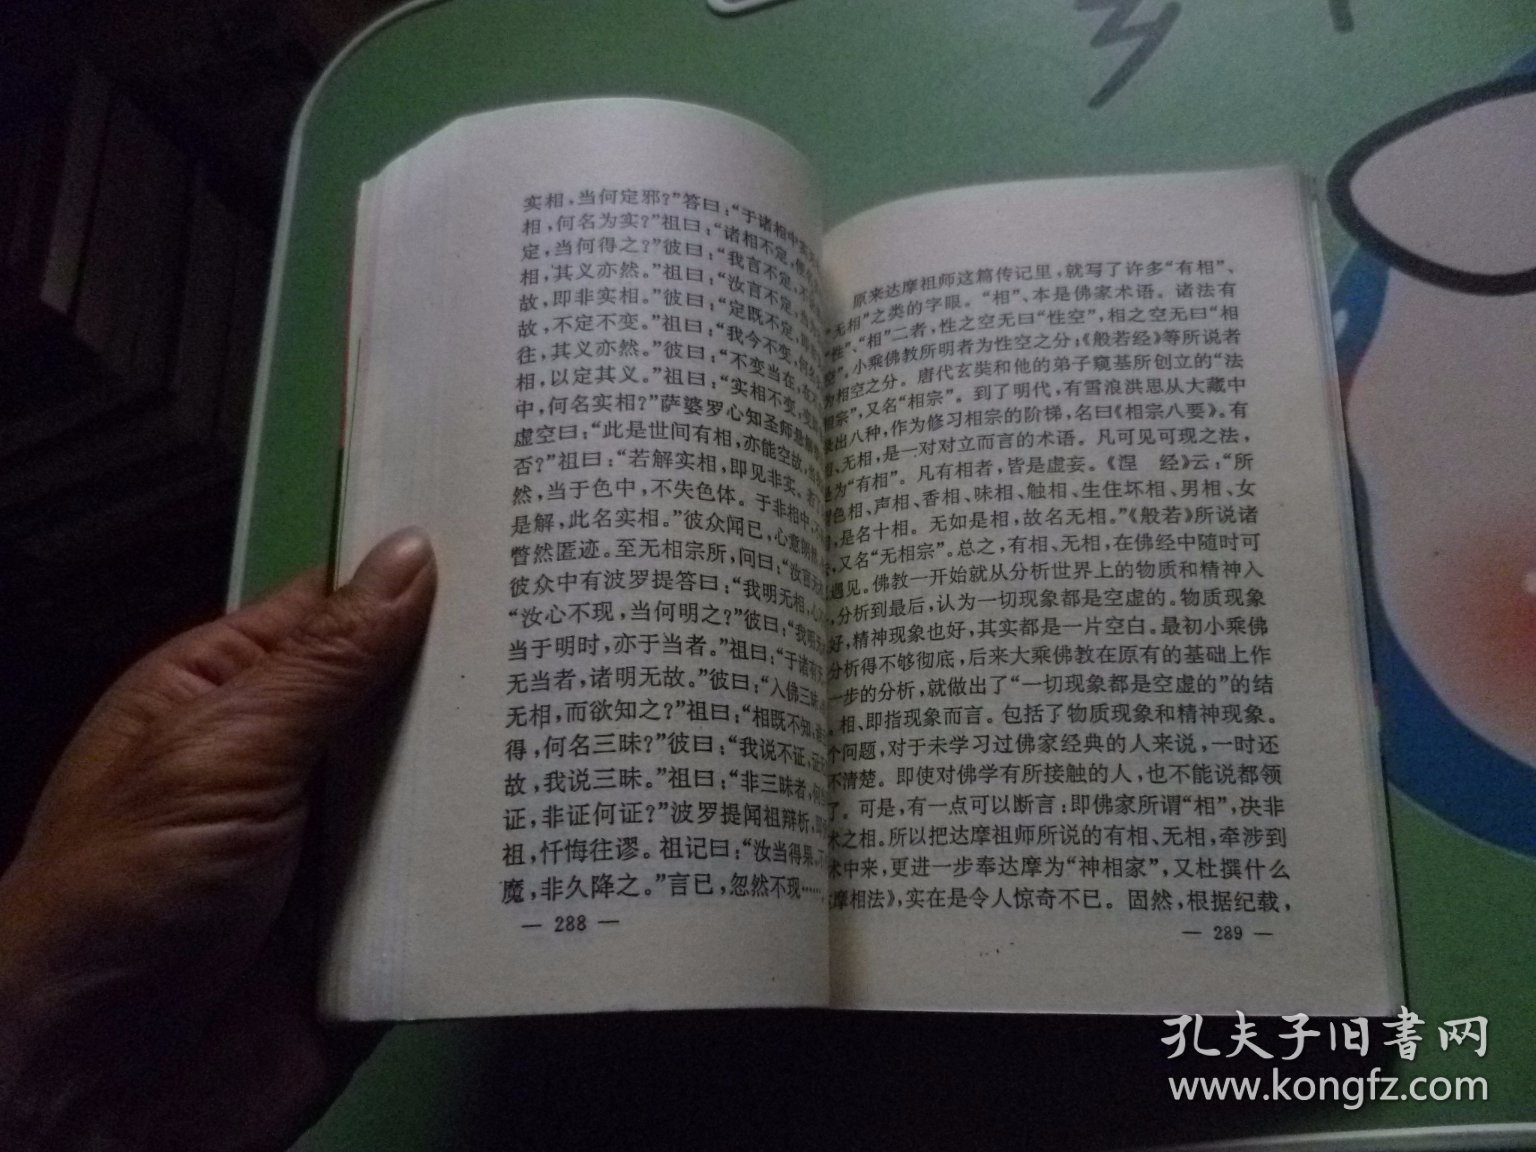 实相，当何定邪？”答曰：“于诸相中
相，何名为实？”祖曰：“诸相不定，
定，当何得之？”彼曰：“我言不定，不
相，其义亦然。”祖曰：“汝言不定，
故，即非实相。”彼曰：“定既不定，即
故，不定不变。”祖曰：“我今不变，何
往，其义亦然。”彼曰：“不变当在，在
相，以定其义。”祖曰：“实相不变，变
中，何名实相？”萨婆罗心知圣师
虚空曰：“此是世间有相，亦能空故，
否？”祖曰：“若解实相，即见非相。若
然，当于色中，不失色体。于非相中，不
是解，此名实相。”彼众闻已，心意朗然，
瞥然匿迹。至无相宗所，问曰：“汝言无
彼众中有波罗提答曰：“我明无相，心
“汝心不现，当何明之？”彼曰：“我明无
当于明时，亦于当者。”祖曰：“于诸有无
无当者，诸明无故。”彼曰：“入佛三昧，
无相，而欲知之？”祖曰：“相既不知，
得，何名三昧？”彼曰：“我说不证，证
故，我说三昧。”祖曰：“非三昧者，何
证，非证何证？”波罗提闻祖辩析，即
祖，忏悔往谬。祖记曰：“汝当得果，不
魔，非久降之。”言已，忽然不现……
— 288 —
原来达摩祖师这篇传记里，就写了许多“有相”、
“无相”之类的字眼。“相”、本是佛家术语。诸法有
“性”、“相”二者，性之空无曰“性空”，相之空无曰“相
空”。小乘佛教所明者为性空之分；《般若经》等所说者
为相空之分。唐代玄奘和他的弟子窥基所创立的“法
相宗”，又名“相宗”。到了明代，有雪浪洪恩从大藏中
出八种，作为修习相宗的阶梯，名曰《相宗八要》。有
相、无相，是一对对立而言的术语。凡可见可现之法，
是为“有相”。凡有相者，皆是虚妄。《涅　经》云：“所
色相、声相、香相、味相、触相、生住坏相、男相、女
，是名十相。无如是相，故名无相。”《般若》所说诸
，又名“无相宗”。总之，有相、无相，在佛经中随时可
遇见。佛教一开始就从分析世界上的物质和精神入
，分析到最后，认为一切现象都是空虚的。物质现象
好，精神现象也好，其实都是一片空白。最初小乘佛
分析得不够彻底，后来大乘佛教在原有的基础上作
一步的分析，就做出了“一切现象都是空虚的”的结
。相、即指现象而言。包括了物质现象和精神现象。
个问题，对于未学习过佛家经典的人来说，一时还
不清楚。即使对佛学有所接触的人，也不能说都领
了。可是，有一点可以断言：即佛家所谓“相”，决非
术之相。所以把达摩祖师所说的有相、无相，牵涉到
术中来，更进一步奉达摩为“神相家”，又杜撰什么
摩相法》，实在是令人惊奇不已。固然，根据纪载，
— 289 —
孔夫子旧书网
www.kongfz.com